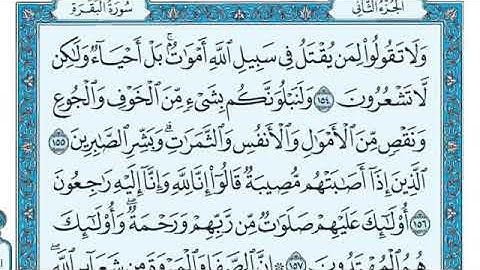 الجزء الثاني سورة البقرة
وَلَا تَقُولُوا۟ لِمَن يُقْتَلُ فِى سَبِيلِ ٱللَّهِ أَمْوَٰتٌۢ ۚ بَلْ أَحْيَآءٌ وَلَـٰكِن
لَّا تَشْعُرُونَ ١٥٤ وَلَنَبْلُوَنَّكُم بِشَىْءٍ مِّنَ ٱلْخَوْفِ وَٱلْجُوعِ
وَنَقْصٍ مِّنَ ٱلْأَمْوَٰلِ وَٱلْأَنفُسِ وَٱلثَّمَرَٰتِ ۗ وَبَشِّرِ ٱلصَّـٰبِرِينَ ١٥٥
ٱلَّذِينَ إِذَآ أَصَـٰبَتْهُم مُّصِيبَةٌ قَالُوٓا۟ إِنَّا لِلَّهِ وَإِنَّآ إِلَيْهِ رَٰجِعُونَ
١٥٦ أُو۟لَـٰٓئِكَ عَلَيْهِمْ صَلَوَٰتٌ مِّن رَّبِّهِمْ وَرَحْمَةٌ ۖ وَأُو۟لَـٰٓئِكَ
هُمُ ٱلْمُهْتَدُونَ ١٥٧ ۞ إِنَّ ٱلصَّفَا وَٱلْمَرْوَةَ مِن شَعَآئِرِ ٱللَّهِ ۖ